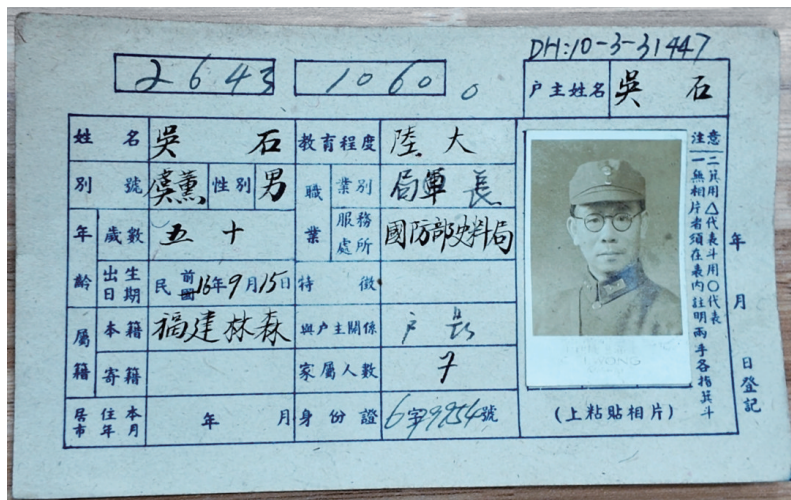 DH:10-3-31447
2643 1060 0
户主姓名 吳石
姓名 吳石 教育程度 陸大
別號 虞薰 性別 男 職業 業別 軍 局長
年齡 歲數 五十 服務處所 國防部史料局
出生日期 民前國16年9月15日 特徵
屬籍 本籍 福建林森 與户主關係 户長
寄籍 家屬人數 7
居住本市年月 年 月 身份證 6字9954號
注意
一無相片者須在表內註明兩手各指箕斗
二箕用△代表斗用○代表
(上粘貼相片)
年 月 日登記